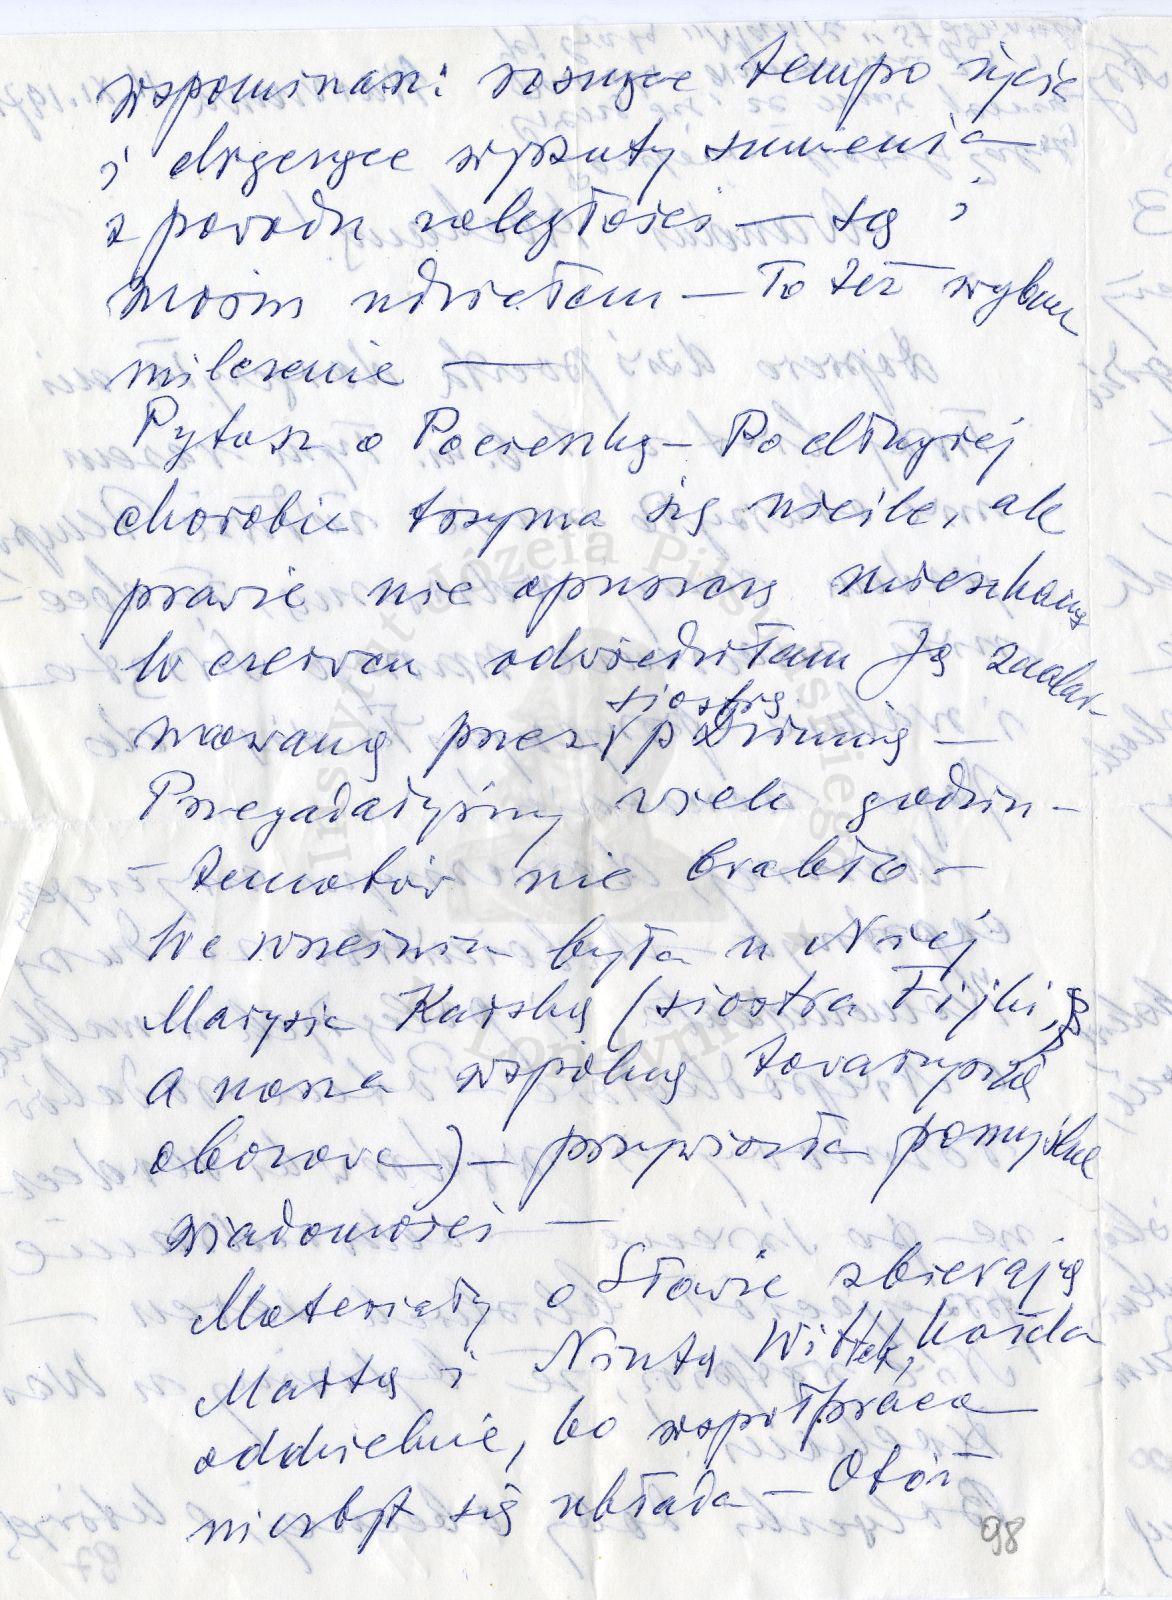 wspominasz: rosnące tempo życia
i dręczące wyrzuty sumienia
z powodu zaległości — są i
moim udziałem — To też wybieram
milczenie —
Pytasz o Pocieszkę — Po dłuższej
chorobie trzyma się nieźle, ale
prawie nie opuszcza mieszkania
W czerwcu odwiedziłam Ją zaalar-
mowana przez siostrę p
Przegadałyśmy wiele godzin —
— tematów nie brakło —
We wrześniu była u Niej
Marysia Karska (siostra Fijki,
a nasza wspólna towarzyszka
obozowa) — przywiozła pomyślne
wiadomości —
Materiały o Sławie zbierają
Marta i Ninta Wittek, każda
oddzielnie, bo współpraca
niezbyt się układa — Otóż
98
Instytut Józefa Piłsudskiego
Londynie
97